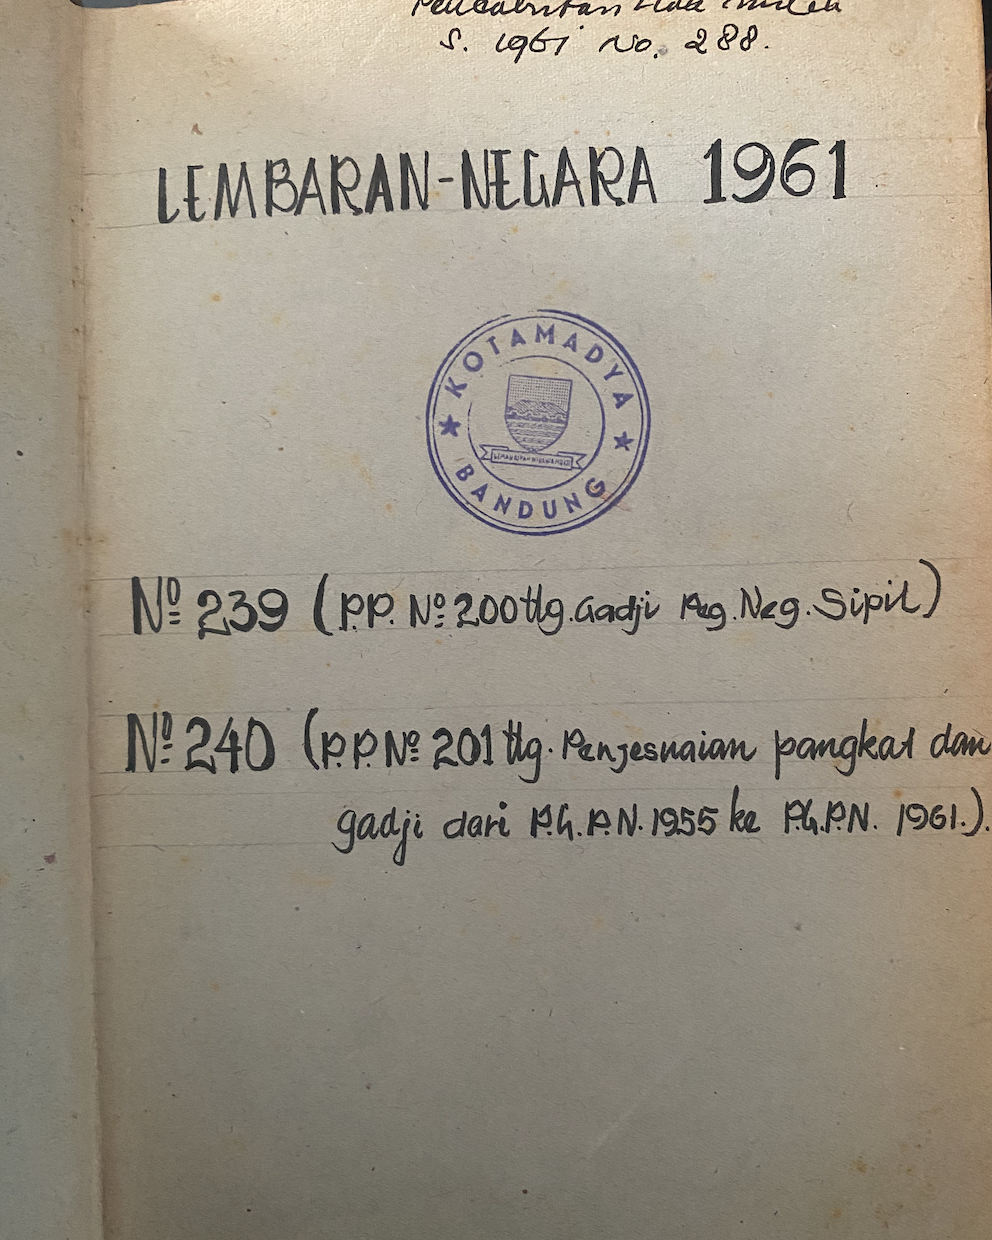 Pencabutan Hak Milik
S. 1961 No. 288.
LEMBARAN-NEGARA 1961
KOTAMADYA
BANDUNG
Nº 239 (P.P. Nº 200 ttg. Gadji Peg. Neg. Sipil)
Nº 240 (P.P. Nº 201 ttg. Penjesuaian pangkat dan
gadji dari P.G.P.N. 1955 ke P.G.P.N. 1961.).